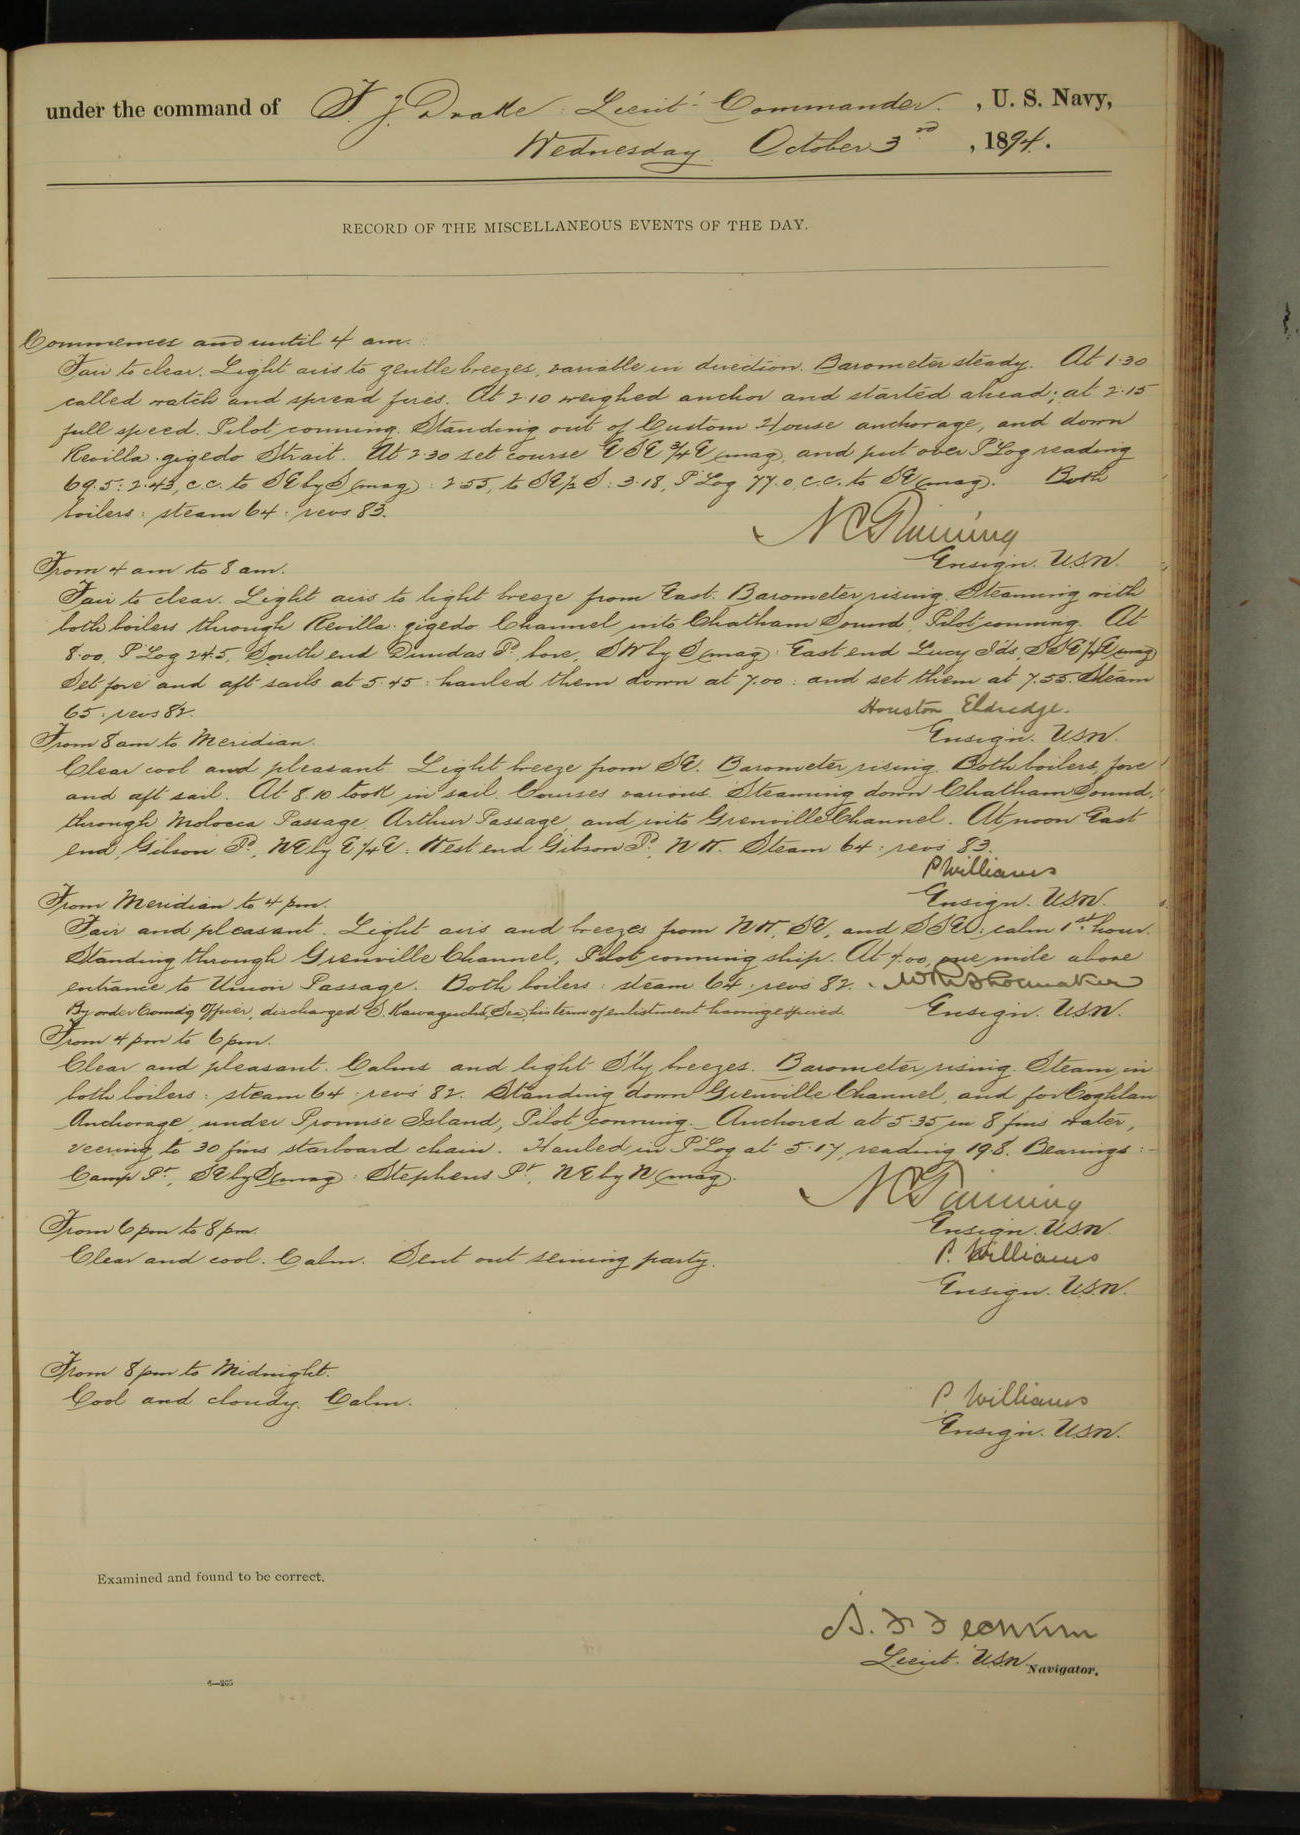 under the command of F. J. Drake Lieut. Commander. , U. S. Navy,
Wednesday October 3rd , 1894.
RECORD OF THE MISCELLANEOUS EVENTS OF THE DAY.
Commences and until 4 am.
Fair to clear. Light airs to gentle breezes, variable in direction. Barometer steady. At 1.30
called watch and spread fires. At 2.10 weighed anchor and started ahead; at 2.15
full speed. Pilot conning. Standing out of Custom House anchorage, and down
Revilla-gigedo Strait. At 2.30 set course ESE 3/4 E (mag), and put over P Log reading
69.5: 2.43, c.c. to SE by S (mag): 2.55, to SE 1/2 S: 3.18, P Log 77.0, c.c. to SE (mag). Both
boilers: steam 64: revs 83.
Ensign. U.S.N.
From 4 am to 8 am.
Fair to clear. Light airs to light breeze from East. Barometer rising. Steaming with
both boilers through Revilla-gigedo Channel, into Chatham Sound, Pilot conning. At
8.00, P Log 24.5, South end Dundas Id. bore, SW by S (mag): East end Lucy Ids, SSE 1/4 E (mag)
Set fore and aft sails at 5.45: hauled them down at 7.00: and set them at 7.55. Steam
65: revs 82.
Houston Eldredge.
Ensign. U.S.N.
From 8 am to Meridian.
Clear cool and pleasant. Light breeze from SE. Barometer rising. Both boilers, fore
and aft sail. At 8.10 took in sail. Courses various. Steaming down Chatham Sound,
through Molocca Passage, Arthur Passage, and into Grenville Channel. At noon East
end, Gibson Id., NE by E 1/4 E: West end Gibson Id., NW. Steam 64: revs 83.
P Williams
Ensign. U.S.N.
From Meridian to 4 pm.
Fair and pleasant. Light airs and breezes from NW, SE, and SSE: calm 1st hour.
Standing through Grenville Channel, Pilot conning ship. At 4.00, one mile above
entrance to Union Passage. Both boilers: steam 64: revs 82. W R Shoemaker
By order Comdg Officer, discharged S. Kawaguchi, Sea, his term of enlistment having expired. Ensign. U.S.N.
From 4 pm to 6 pm.
Clear and pleasant. Calms and light S'ly breezes. Barometer rising. Steam in
both boilers: steam 64: revs 82. Standing down Grenville Channel, and for Coghlan
Anchorage, under Promise Island, Pilot conning. Anchored at 5.35 in 8 fms water,
veering to 30 fms starboard chain. Hauled in P Log at 5.17, reading 19.8. Bearings:-
Camp Pt, SE by S (mag): Stephens Pt, NE by N (mag).
Ensign. U.S.N.
From 6 pm to 8 pm.
Clear and cool. Calm. Sent out seining party.
P. Williams
Ensign. U.S.N.
From 8 pm to Midnight.
Cool and cloudy. Calm.
P. Williams
Ensign. U.S.N.
Examined and found to be correct.
Lieut. U.S.N. Navigator.